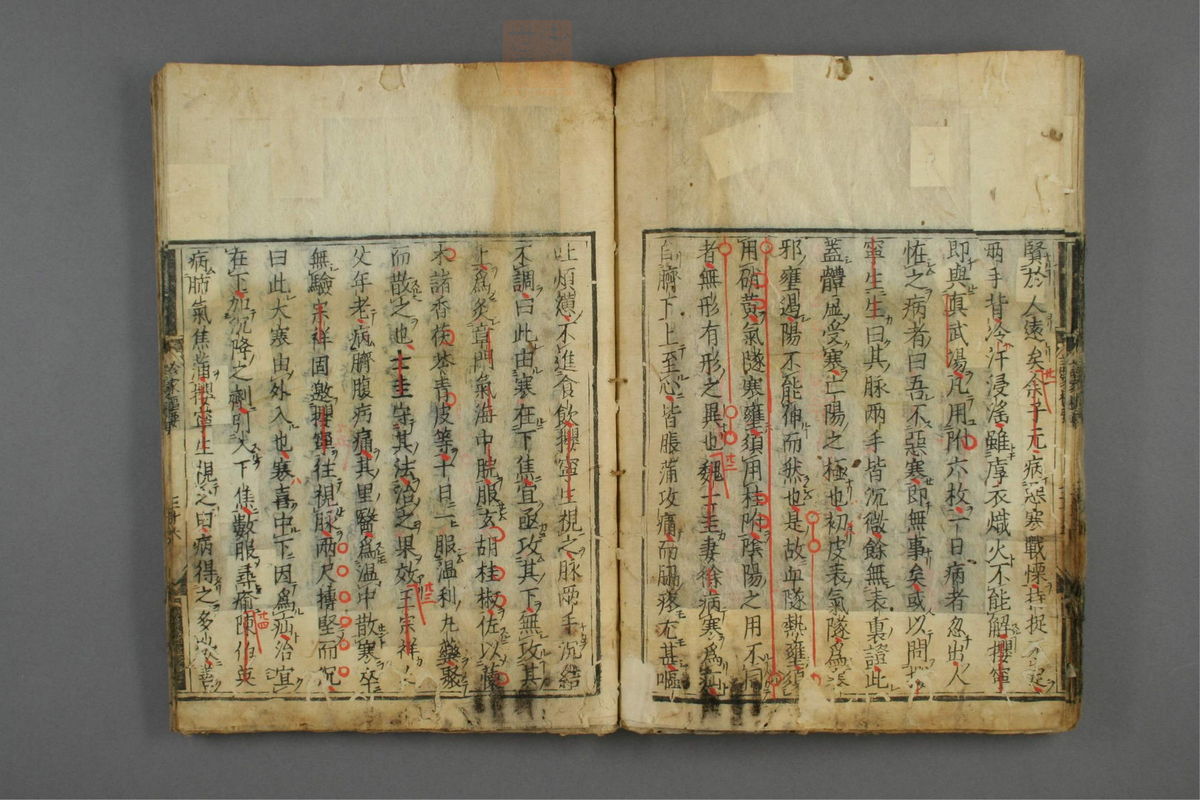 賢於人遠矣余子元病惡寒戰慄持捉不定
兩手背冷汗浸淫雖厚衣熾火不能解攖寧
即與真武湯凡用附六枚一日病者忽出人
怪之病者曰吾不惡寒即無事矣或以問攖
寧生生曰其脉兩手皆沉微餘無表裏證此
蓋體虛受寒亡陽之極也初皮表氣隧為寒
邪壅遏陽不能伸而然也是故血隧熱壅須
用硝黃氣隧寒壅須用桂附陰陽之用不同
者無形有形之異也魏士圭妻徐病寒為疝
自臍下上至心皆脹滿攻痛而脇疼尤甚嘔
吐煩懣不進食飲攖寧生視之脉兩手沉結
不調曰此由寒在下焦宜亟攻其下無攻其
上為灸章門氣海中脘服玄胡桂椒佐以茴
木諸香茯苓青皮等十日一服温利丸藥聚
而散之也士圭守其法治之果效王宗祥
父年老病臍腹病痛其里醫為温中散寒卒
無驗宗祥固邀攖寧往視脉兩尺搏堅而沉
曰此大寒由外入也寒喜中下因為疝治宜
在下加沉降之劑引入下焦數服尋瘉陳伯英
病肺氣焦滿攖寧生視之曰病得之多